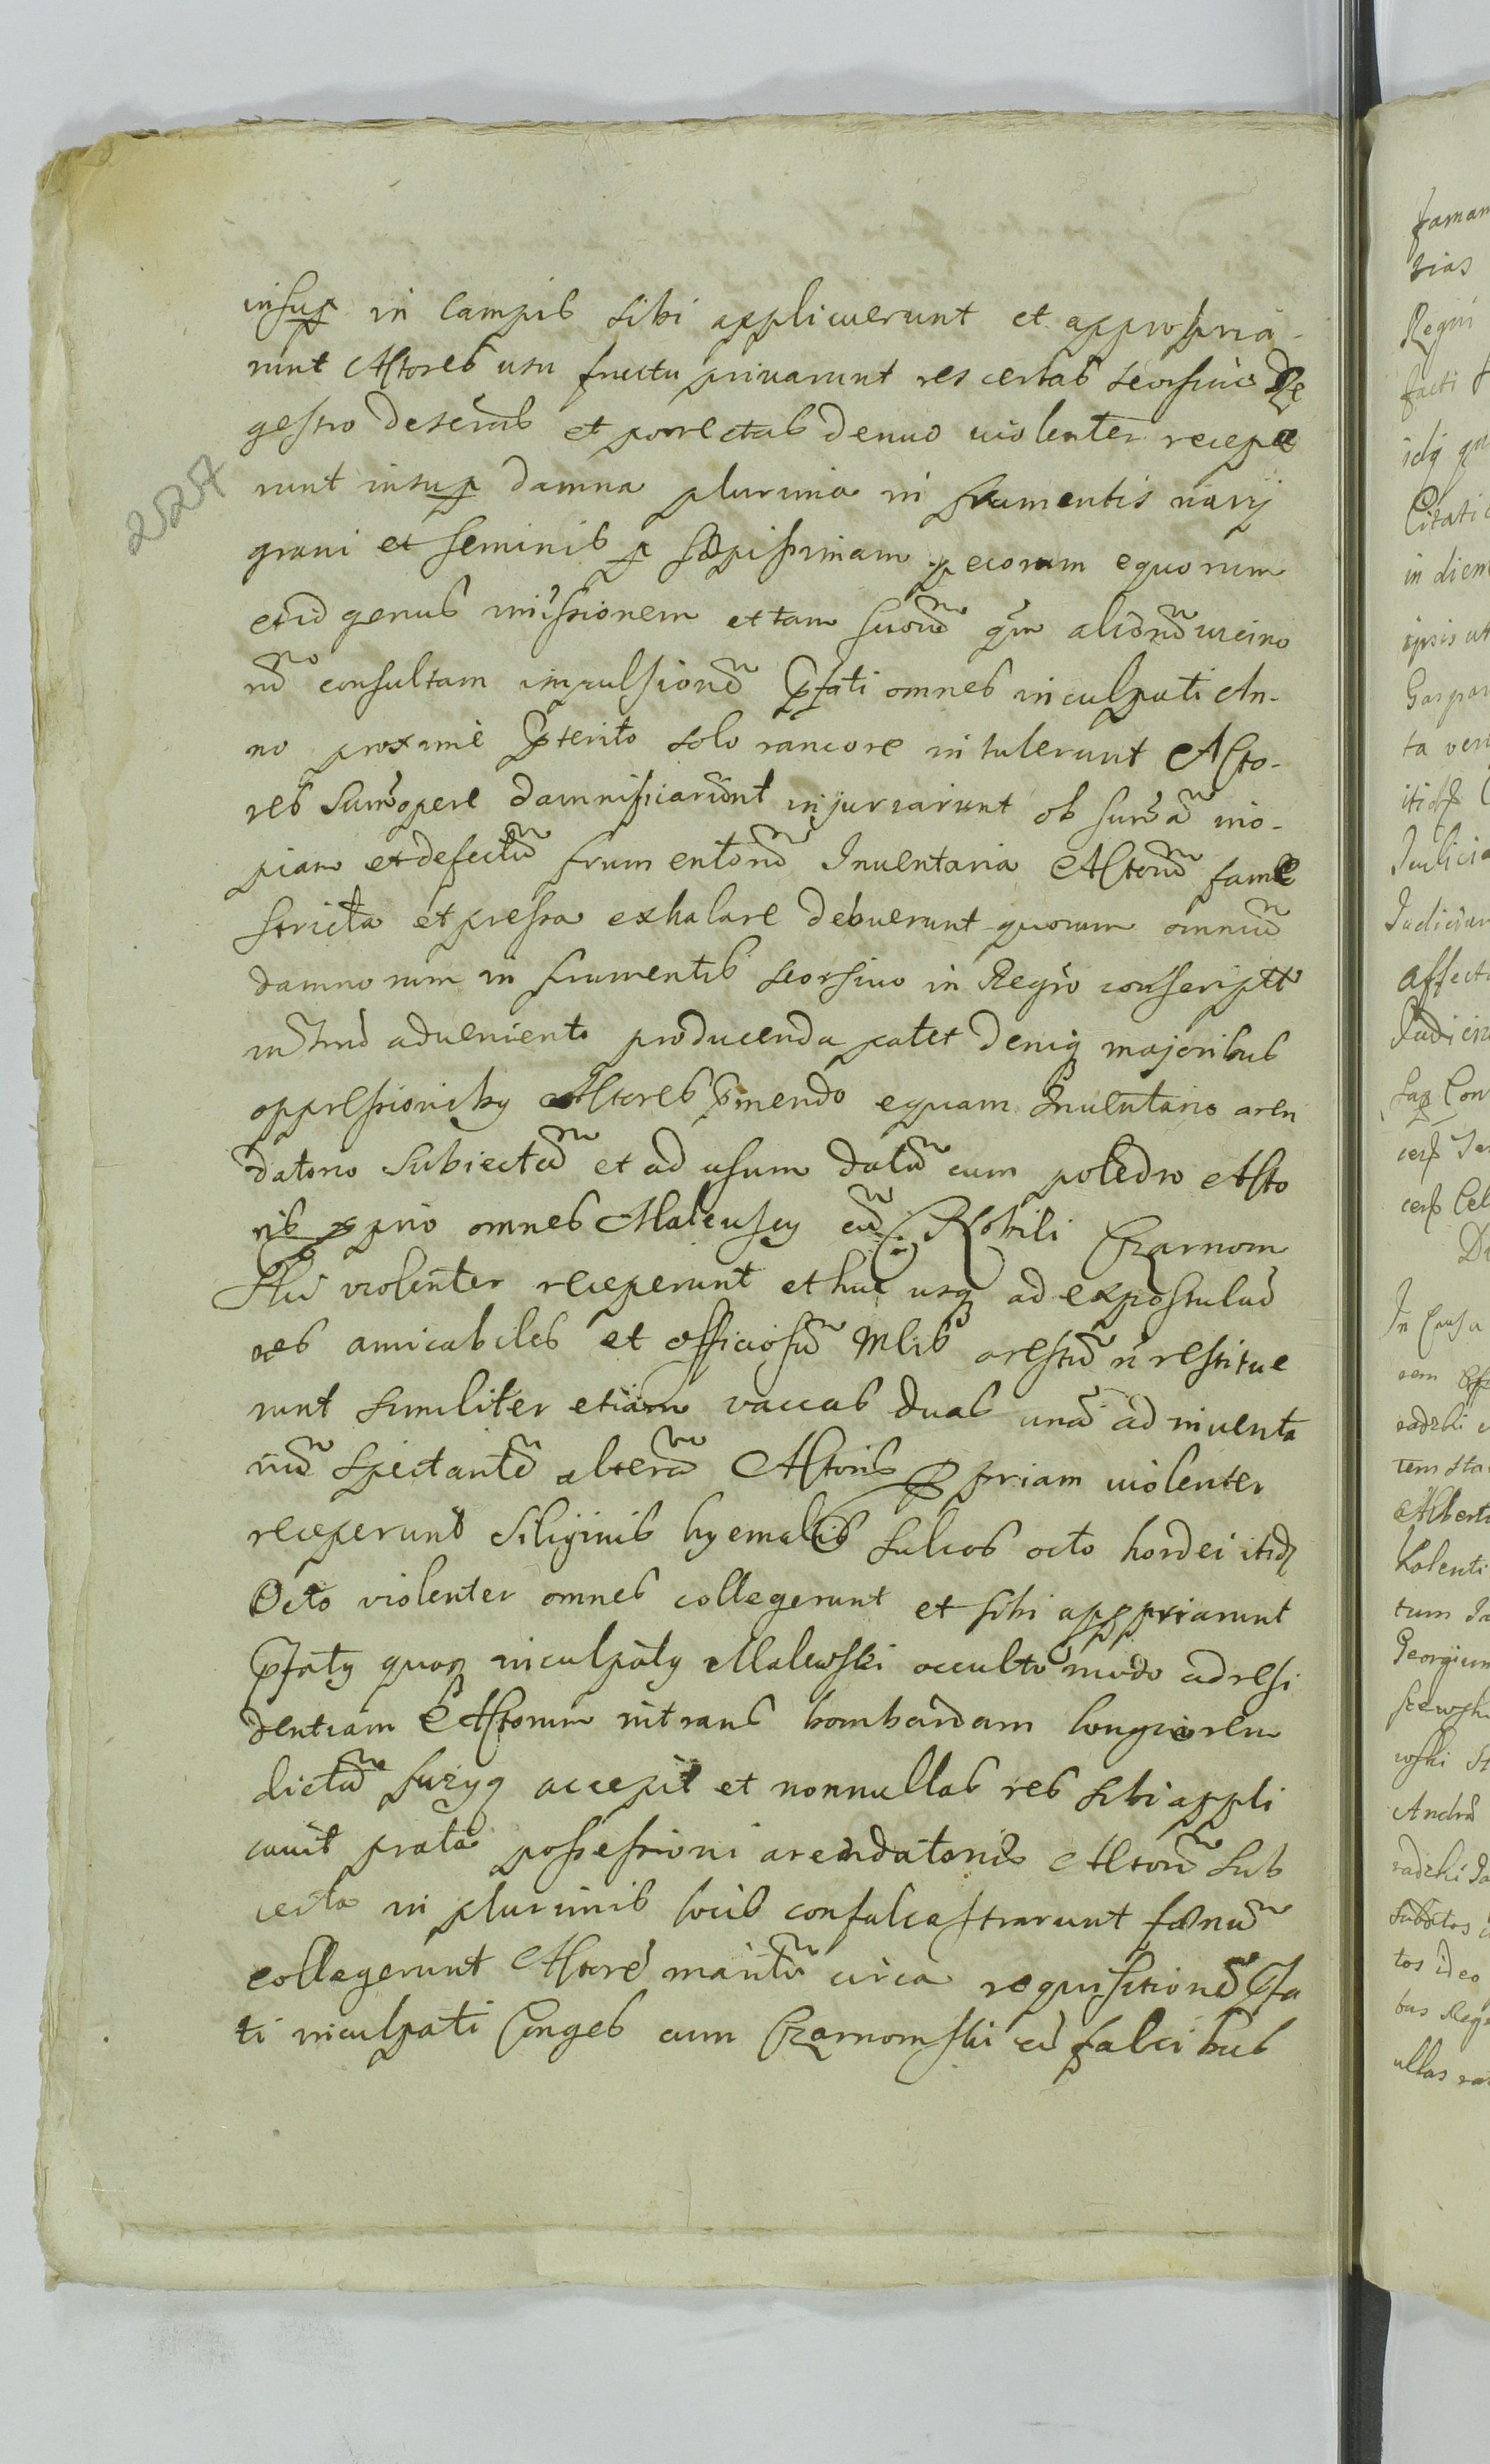 insup in Campis sibi applicuerunt et appropria-
runt Actores usu fructu privarunt res certas seorsivo Re
gestro deserib et porrectas denuo violenter recepe
runt insup damna plurima in frumentis varij
grani et seminis p sæpissimam pecorum equorum
et id genus immissionem et tam suorũ qm aliorũ vicino
rũ consultam impulsionẽ pfati omnes inculpati An-
no proximè pterito solo rancore intulerunt Acto-
res sumopere damnificarunt injuriarunt ob sumã ino-
piam et defectũ frumentorũ Inventaria Actorũ fame
stricta et pressa exhalare debuerunt quorum omniũ
damnorum in frumentis seorsivo in Regro conscript
in Tmo adveniento producenda patet deniq majoribus
oppressionibq Actores pmendo equam Inventario aren
datorio subiectã et ad usum datã cum poledro Acto
ris pprio omnes Malewscy cũ Nobili Czarnom
Ski violenter receperunt et huc usq ad expostulaõ
nes amicabiles et officiosũ Mlis arestũ ñ restitue
runt similiter etiam vaccas duas unã ad inventa
riũ spectantẽ alterã Actoris ppriam violenter
receperunt Siliginis hyemalis sulcos octo hordei itidẽ
Octo violenter omnes collegerunt et sibi apppriarunt
pfatq quoq inculpatq Malewski occulto modo ad resi
dentiam Actorum intrans bombardam longiorem
dictã fuzyą accepit et nonnullas res sibi appli
cavit prata possessioni arendatoriæ Actorũ Sub
iecta in plurimis locis confalcastrarunt fænũ
collegerunt Actorẽ maritũ circa requisitionẽ pfa
ti inculpati Conges cum Czarnomski cũ falcibus
2527
faman
rias
Regni
facti
idq qu
Citatio
in diem
ipsis ut
Gaspar
ta ver
Judicia
Judiciar
affect
Judicio
Sap Con
In Causa
radzki
tem sta
Alberti
Valenti
tum Ja
Georgium
wski St
Andr
radzki Ja
tos ideo
bus Reg
ullas ra